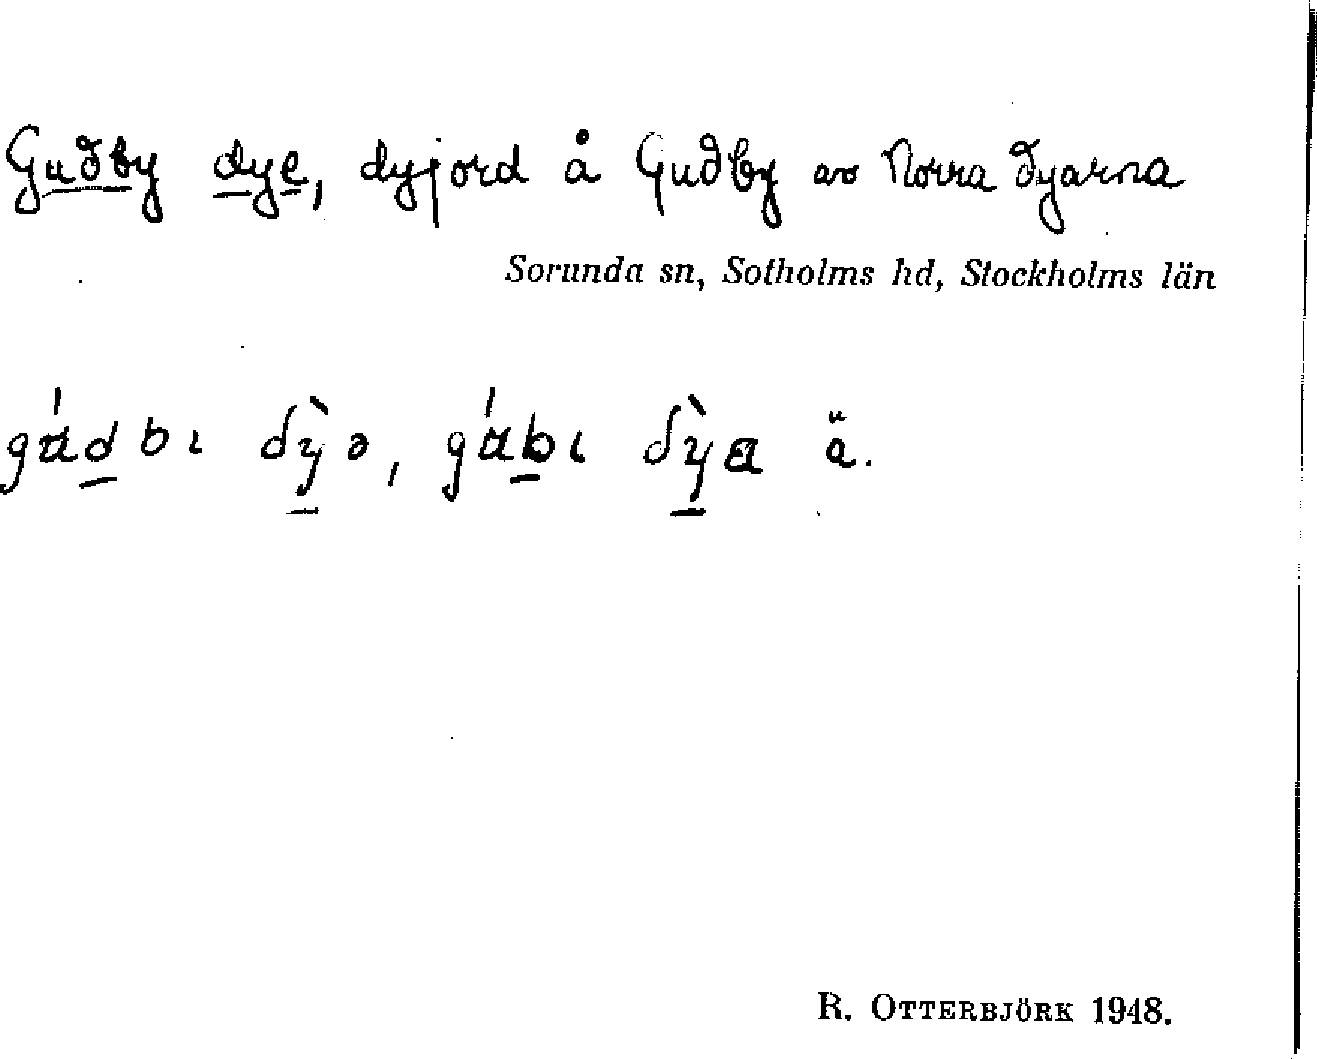 Gudby dye, dyjord å Gudby av Norra Dyarna
Sorunda sn, Sotholms hd, Stockholms län
R. OTTERBJÖRK 1948.